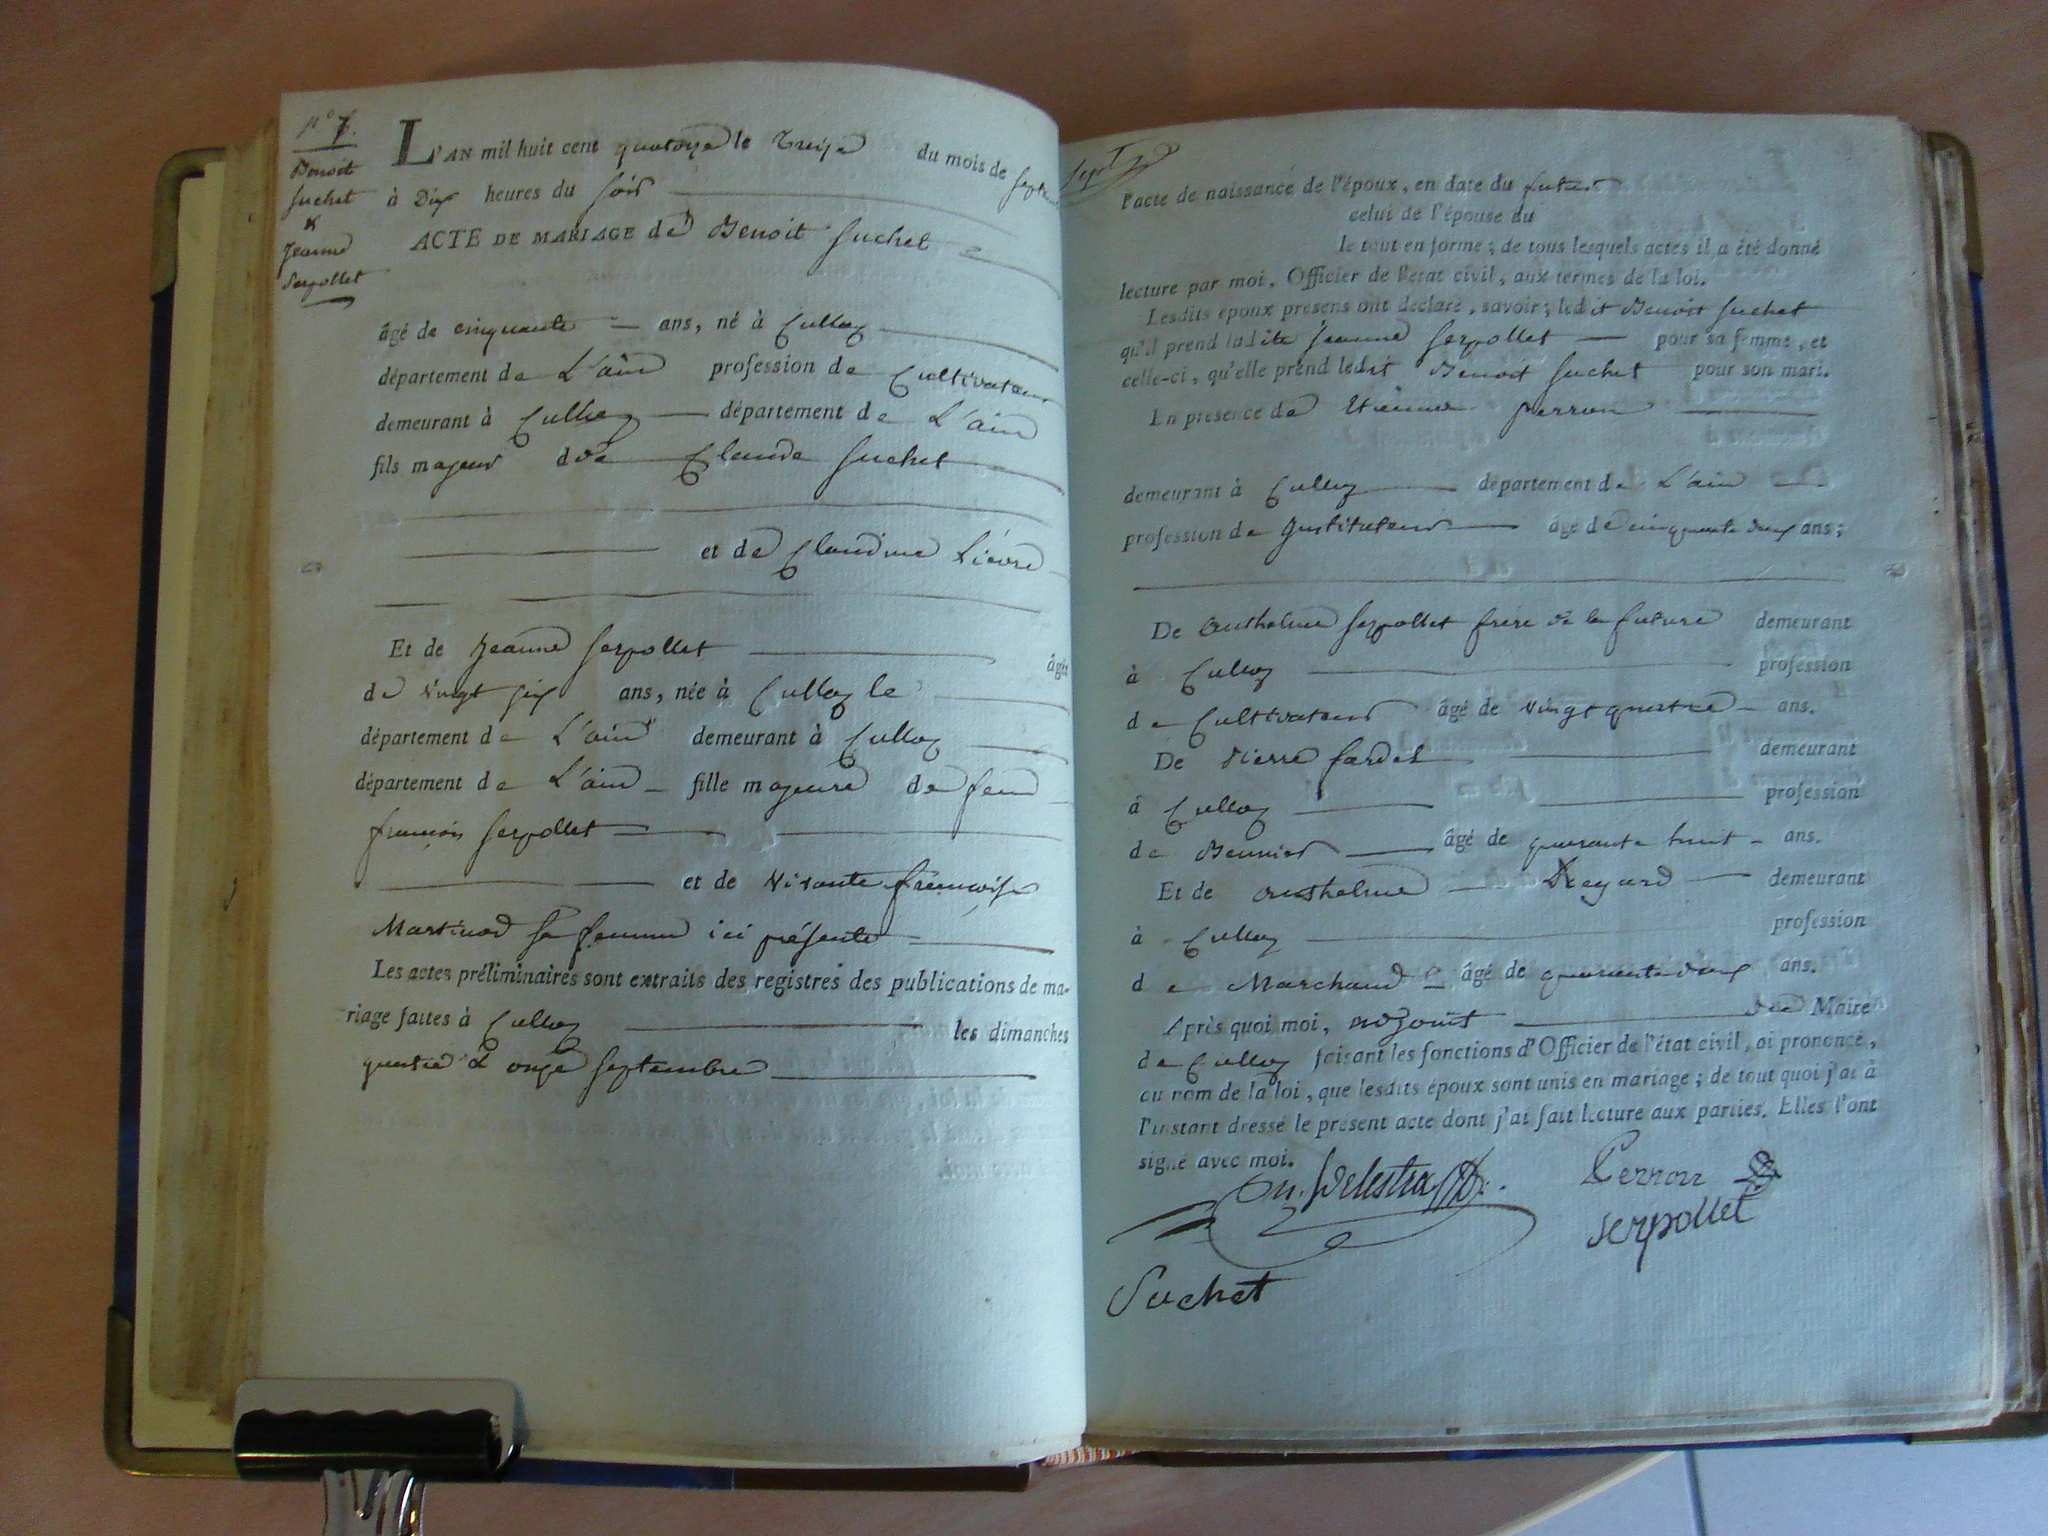 n.º 7.
Benoit
Suchet
&
Jeanne
Serpollet
L'AN mil huit cent quatorze le treize du mois de septembre
à Dix heures du soir
ACTE DE MARIAGE de Benoit Suchet
âgé de cinquante ans, né à Culloz
département de L'ain profession de Cultivateur
demeurant à Culloz département de L'ain
fils majeur de Claude Suchet
et de Claudine Lièvre
Et de Jeanne Serpollet âgée
de vingt six ans, née à Culloz le
département de L'ain demeurant à Culloz
département de L'ain fille majeure de feu
françois Serpollet
et de françoise
Martinod sa femme ici présente
Les actes préliminaires sont extraits des registres des publications de ma-
riage faites à Culloz les dimanches
quatre & onze septembre
l'acte de naissance de l'époux, en date du
celui de l'épouse du
le tout en forme ; de tous lesquels actes il a été donné
lecture par moi, Officier de l'état civil, aux termes de la loi.
Lesdits époux présens ont déclaré, savoir ; ledit Benoit Suchet
qu'il prend ladite Jeanne Serpollet pour sa femme, et
celle-ci, qu'elle prend ledit Benoit Suchet pour son mari.
En présence de Etienne perron
demeurant à Culloz département de L'ain
profession de Instituteur âgé de cinquante deux ans ;
De Anthelme Serpollet frère de la future demeurant
à Culloz profession
de Cultivateur âgé de vingt quatre ans.
De Pierre fardel demeurant
à Culloz profession
de Meunier âgé de quarante huit ans.
Et de Anthelme Regard demeurant
à Culloz profession
de Marchand âgé de quarante deux ans.
Après quoi moi, Maire
de Culloz faisant les fonctions d'Officier de l'état civil, ai prononcé,
au nom de la loi, que lesdits époux sont unis en mariage ; de tout quoi j'ai à
l'instant dressé le présent acte dont j'ai fait lecture aux parties. Elles l'ont
signé avec moi.
Perron
Serpollet
Suchet